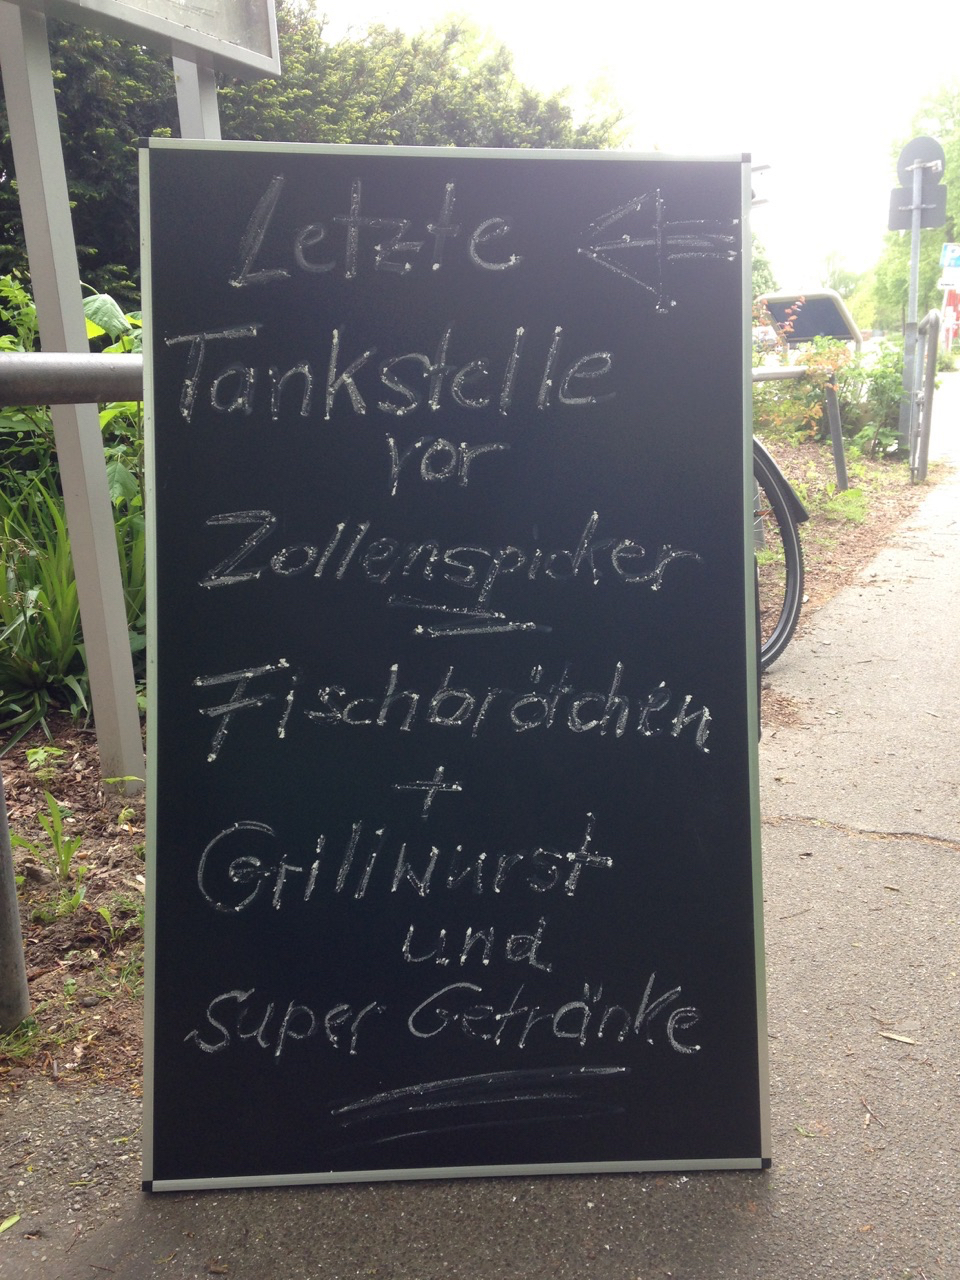 Letzte
Tankstelle
vor
Zollenspicker
Fischbrötchen
+
Grillwurst
und
Super Getränke